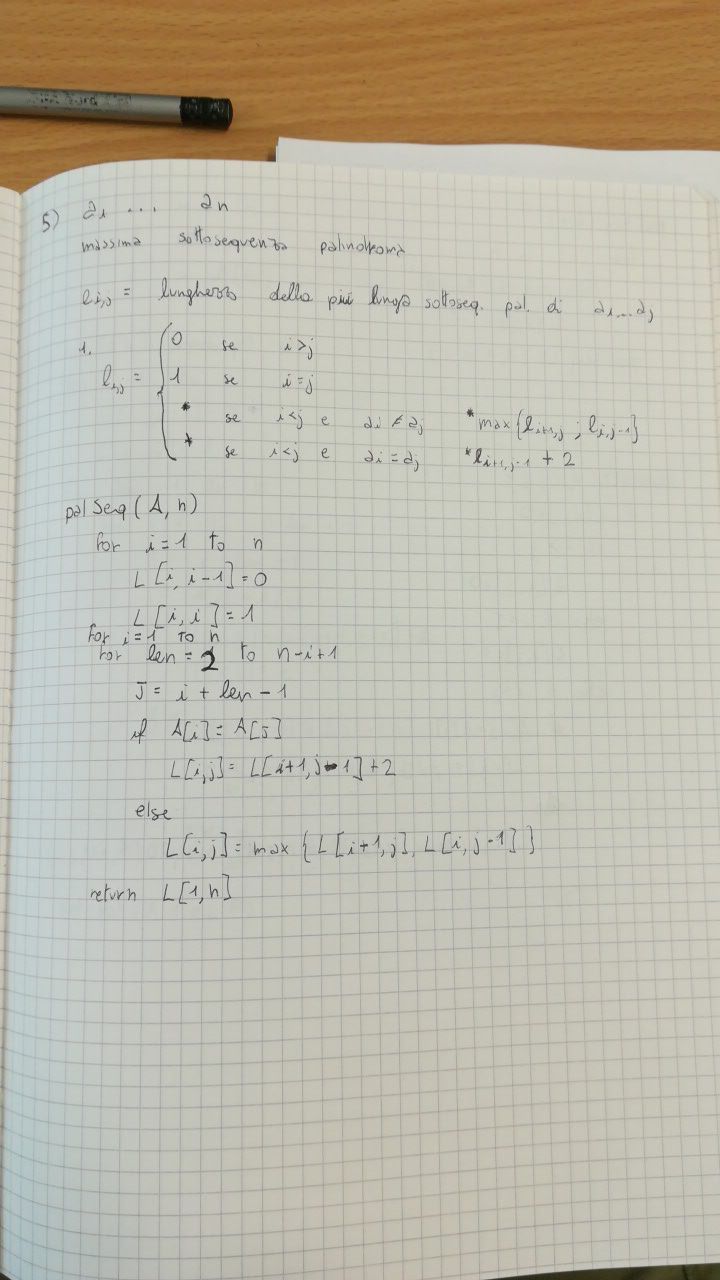 5) a₁ ... an
massima sottosequenza palindroma
li,j = lunghezza della più lunga sottoseq. pal. di ai...aj
1.
li,j = { 0 se i>j
1 se i=j
* se i<j e ai ≠ aj *max{li+1,j ; li,j-1}
* se i<j e ai = aj *li+1,j-1 + 2
palSeq(A, n)
for i=1 to n
L[i, i-1]=0
L[i, i]=1
for i=1 to n
for len=2 to n-i+1
J= i + len - 1
if A[i]= A[J]
L[i,j]= L[i+1, j-1]+2
else
L[i,j]= max { L[i+1,j], L[i,j-1] }
return L[1,n]